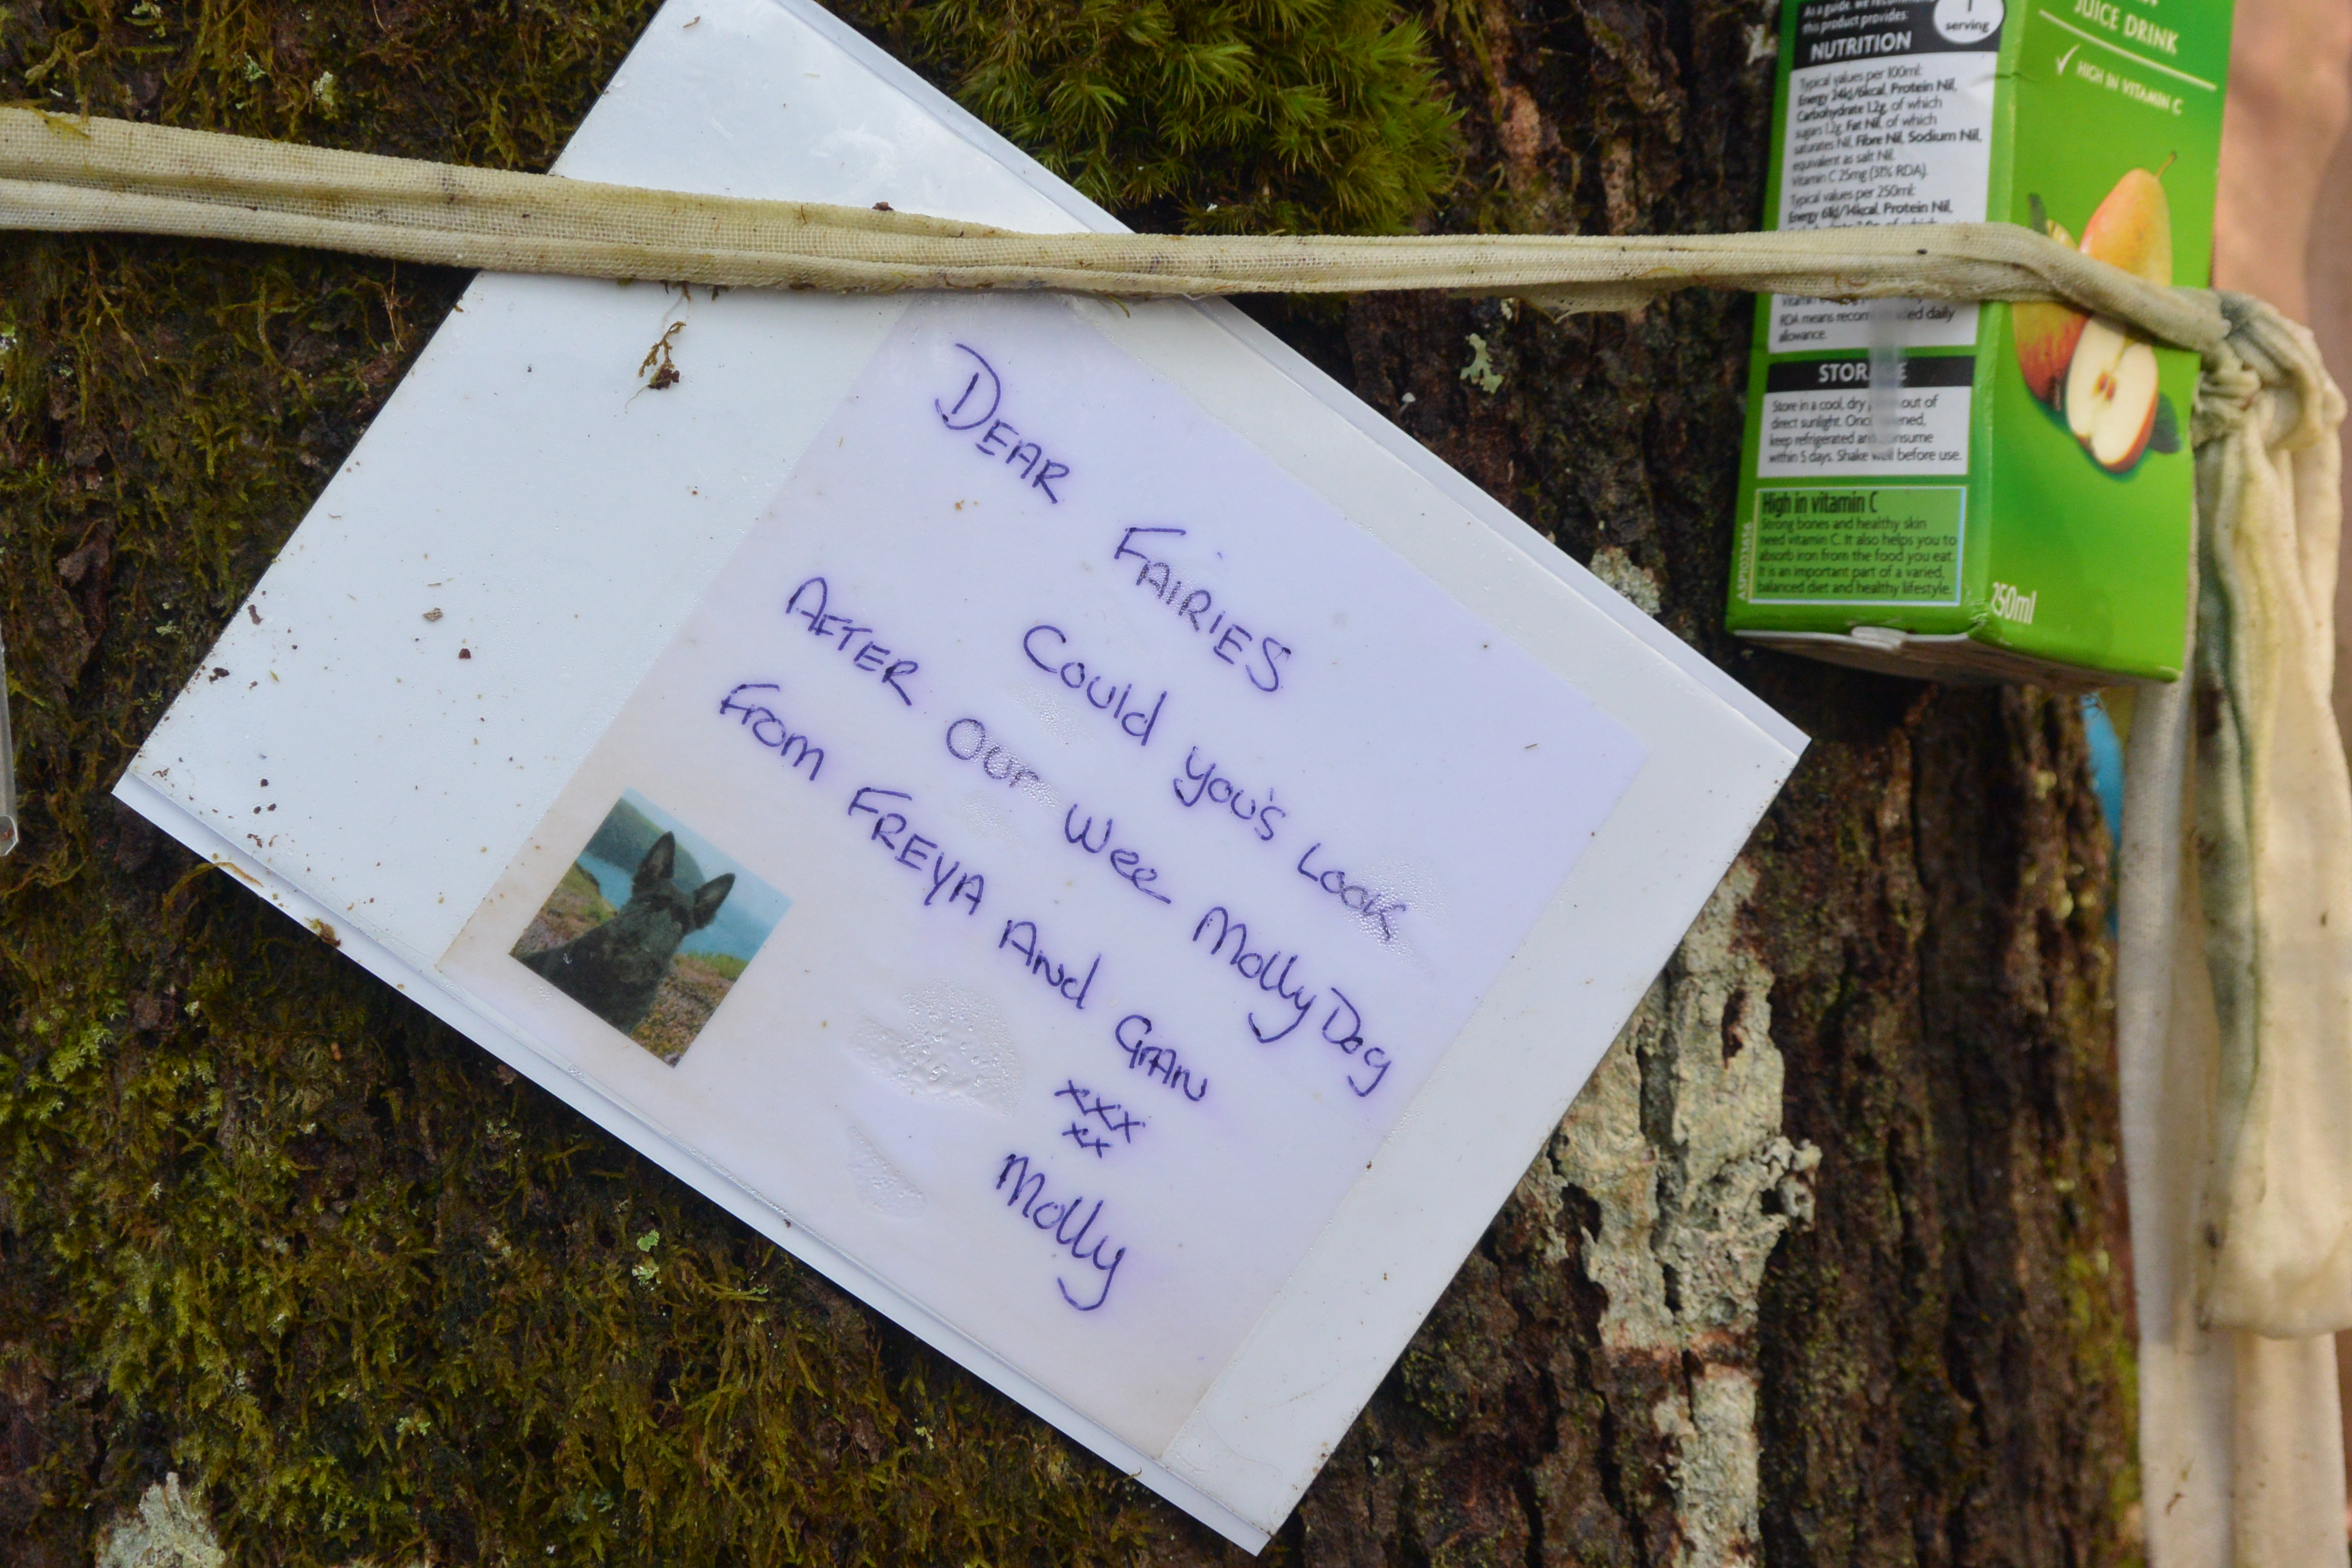 DEAR FAIRIES
Could you's Look
AFTER Our Wee Molly Dog
From FREYA And GRAN
xxx
xx
Molly
As a guide, we
this product provides:
1
serving
NUTRITION
Typical values per 100ml:
Energy 24kJ/6kcal, Protein Nil,
Carbohydrate 1.2g, of which
sugars 1.2g, Fat Nil, of which
saturates Nil, Fibre Nil, Sodium Nil,
equivalent as salt Nil.
Vitamin C 25mg (31% RDA).
Typical values per 250ml:
Energy 61kJ/14kcal, Protein Nil,
RDA means daily
allowance.
Store in a cool, dry out of
direct sunlight.
keep refrigerated
within 5 days. Shake well before use.
High in vitamin C
Strong bones and healthy skin
need vitamin C. It also helps you to
absorb iron from the food you eat.
It is an important part of a varied,
balanced diet and healthy lifestyle.
JUICE DRINK
✓ HIGH IN VITAMIN C
250ml